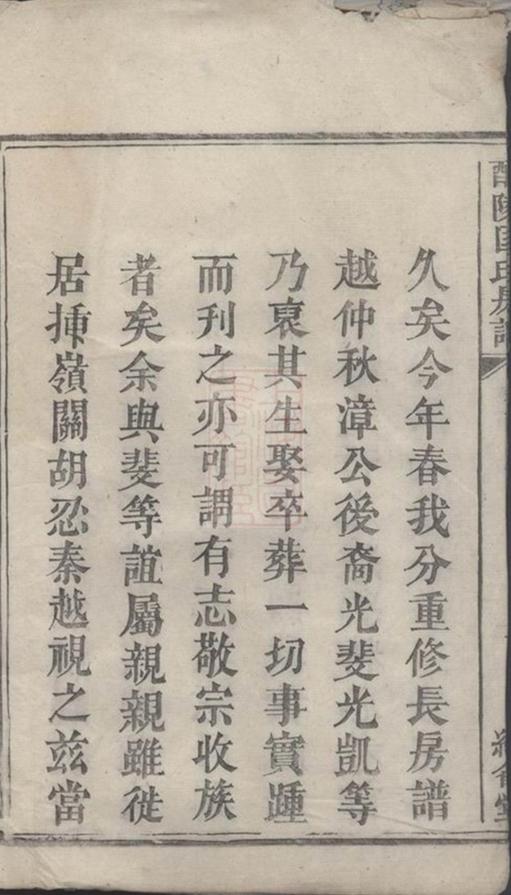 醴陵匡氏房譜
久矣今年春我分重修長房譜
越仲秋漳公後裔光斐光凱等
乃裒其生娶卒葬一切事實踵
而刊之亦可謂有志敬宗收族
者矣余與斐等誼屬親親雖徙
居揷嶺關胡忍秦越視之茲當